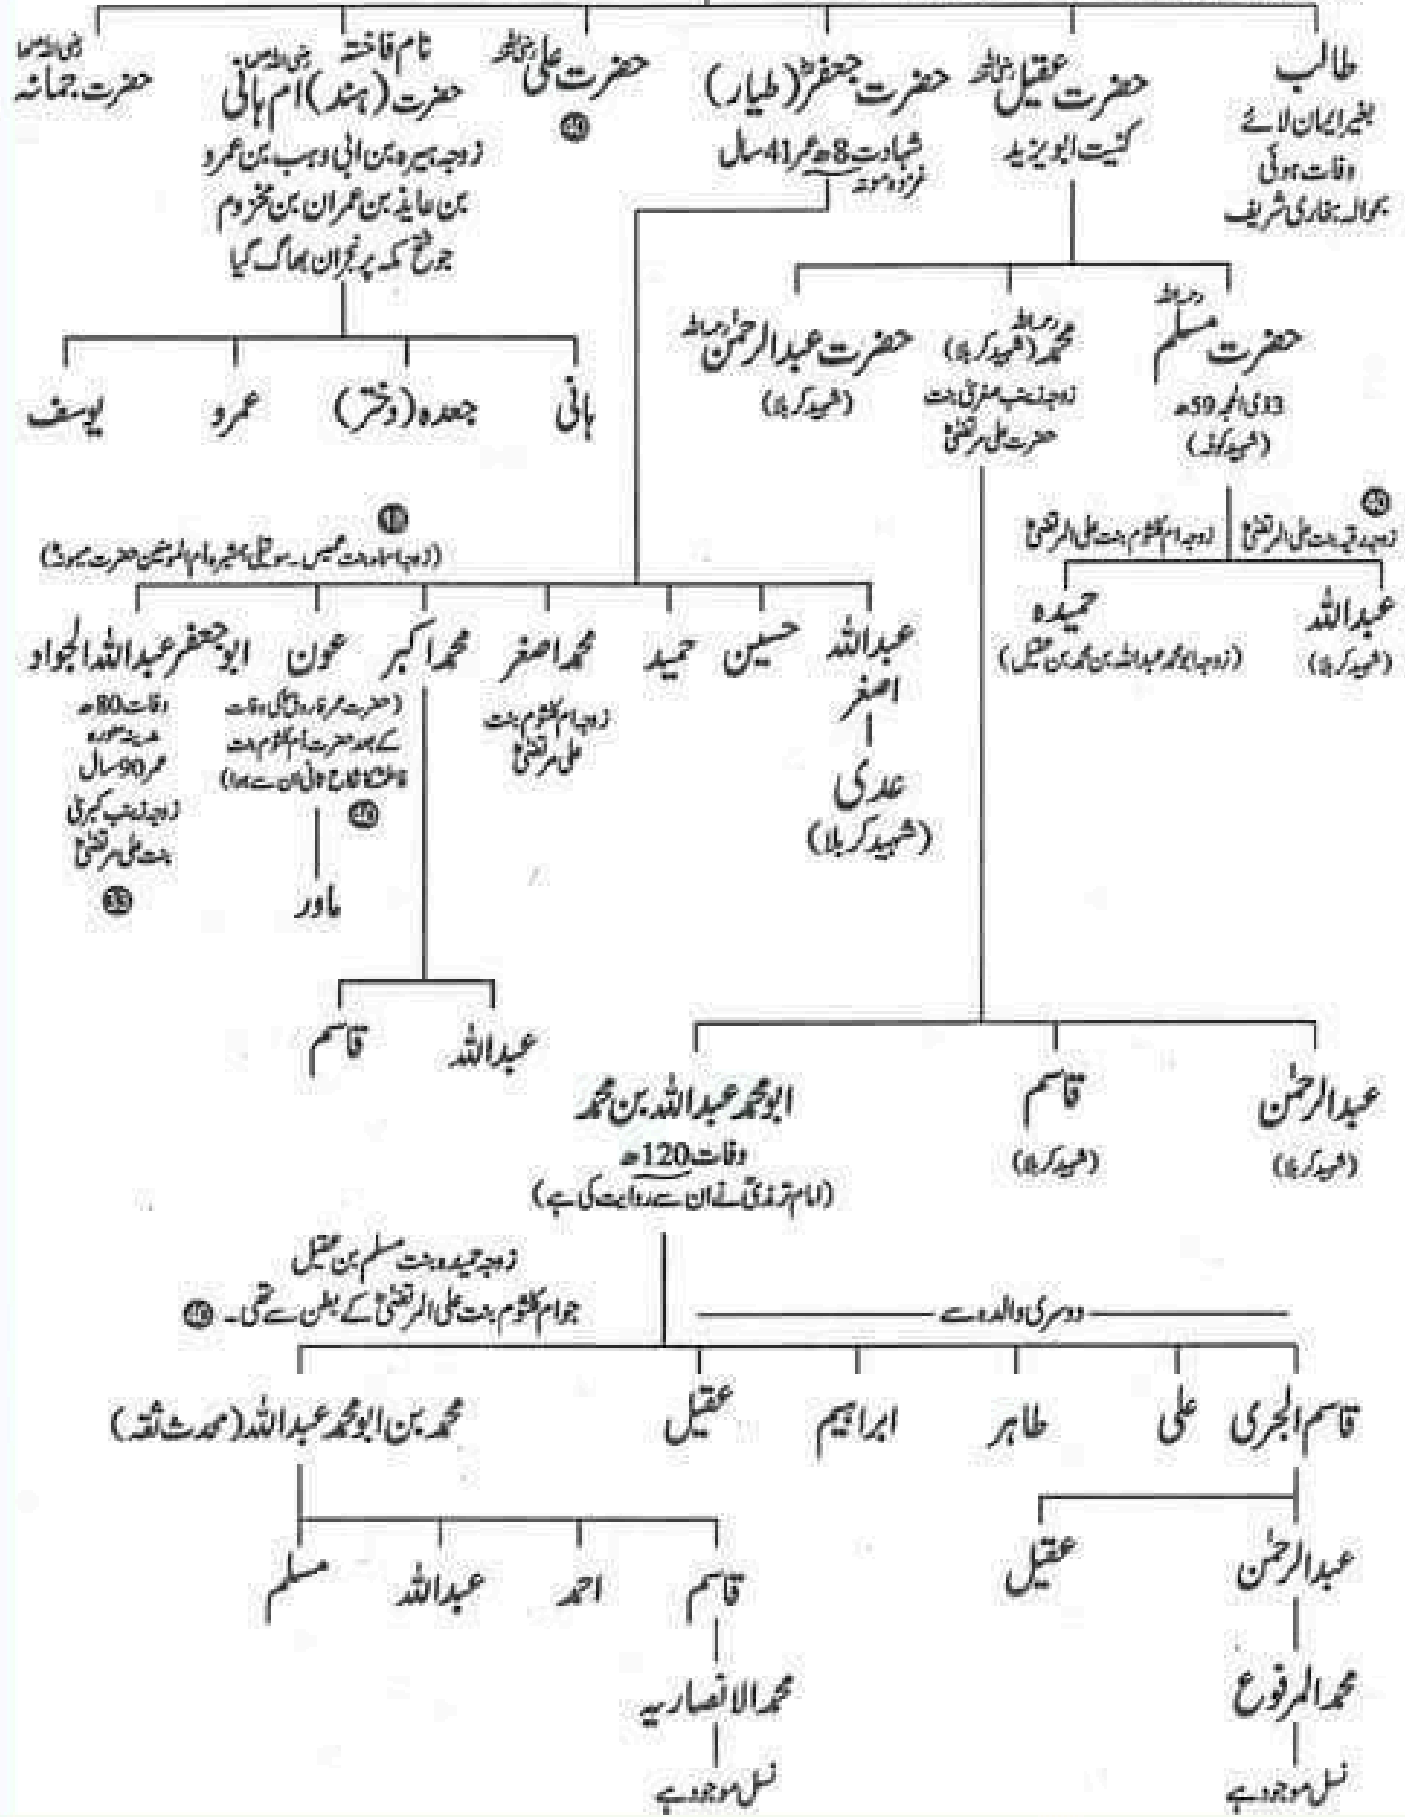 طالب
بغیر ایمان لائے
وفات ہوئی
بحوالہ بخاری شریف
حضرت عقیل رضی اللہ عنہ
کنیت ابو یزید
حضرت جعفرؓ (طیار)
شہادت 8ھ عمر 41 سال
غزوہ موتہ
حضرت علی رضی اللہ عنہ
نام فاختہ
حضرت (ہند) ام ہانی رضی اللہ عنہا
زوجہ ہبیرہ بن ابی وہب بن عمرو
بن عایذ بن عمران بن مخزوم
جو فتح مکہ پر نجران بھاگ گیا
حضرت جمانہ رضی اللہ عنہا
حضرت مسلم رحمہ اللہ
3 ذی الحجہ 59ھ
(شہید کوفہ)
محمد رحمہ اللہ (شہید کربلا)
زوجہ زینب صغریٰ بنت
حضرت علی مرتضیٰؓ
حضرت عبدالرحمٰن رحمہ اللہ
(شہید کربلا)
ہانی
جعدہ (دختر)
عمرو
یوسف
زوجہ رقیہ بنت علی المرتضیٰؓ
زوجہ ام کلثوم بنت علی المرتضیٰؓ
عبداللہ
(شہید کربلا)
حمیدہ
(زوجہ ابو محمد عبداللہ بن محمد بن عقیل)
(زوجہ اسماء بنت عمیس۔ سوتیلی ہمشیرہ ام المومنین حضرت میمونہؓ)
عبداللہ
اصغر
عدی
(شہید کربلا)
حسین
حمید
محمد اصغر
زوجہ ام کلثوم بنت
علی مرتضیٰؓ
محمد اکبر
عون
(حضرت عمر فاروقؓ کی وفات
کے بعد حضرت ام کلثوم بنت
فاطمہؓ کا نکاح ثانی ان سے ہوا)
ماور
ابو جعفر عبداللہ الجواد
وفات 80ھ
مدینہ منورہ
عمر 90 سال
زوجہ زینب کبریٰ
بنت علی مرتضیٰؓ
عبداللہ
قاسم
عبدالرحمٰن
(شہید کربلا)
قاسم
(شہید کربلا)
ابو محمد عبداللہ بن محمد
وفات 120ھ
(امام ترمذیؒ نے ان سے روایت کی ہے)
زوجہ حمیدہ بنت مسلم بن عقیل
جو ام کلثوم بنت علی المرتضیٰؓ کے بطن سے تھی۔
دوسری والدہ سے
قاسم الجری
علی
طاہر
ابراہیم
عقیل
محمد بن ابو محمد عبداللہ (محدث ثقہ)
عبدالرحمٰن
عقیل
قاسم
احمد
عبداللہ
مسلم
محمد المرفوع
محمد الانصاریہ
نسل موجود ہے
نسل موجود ہے